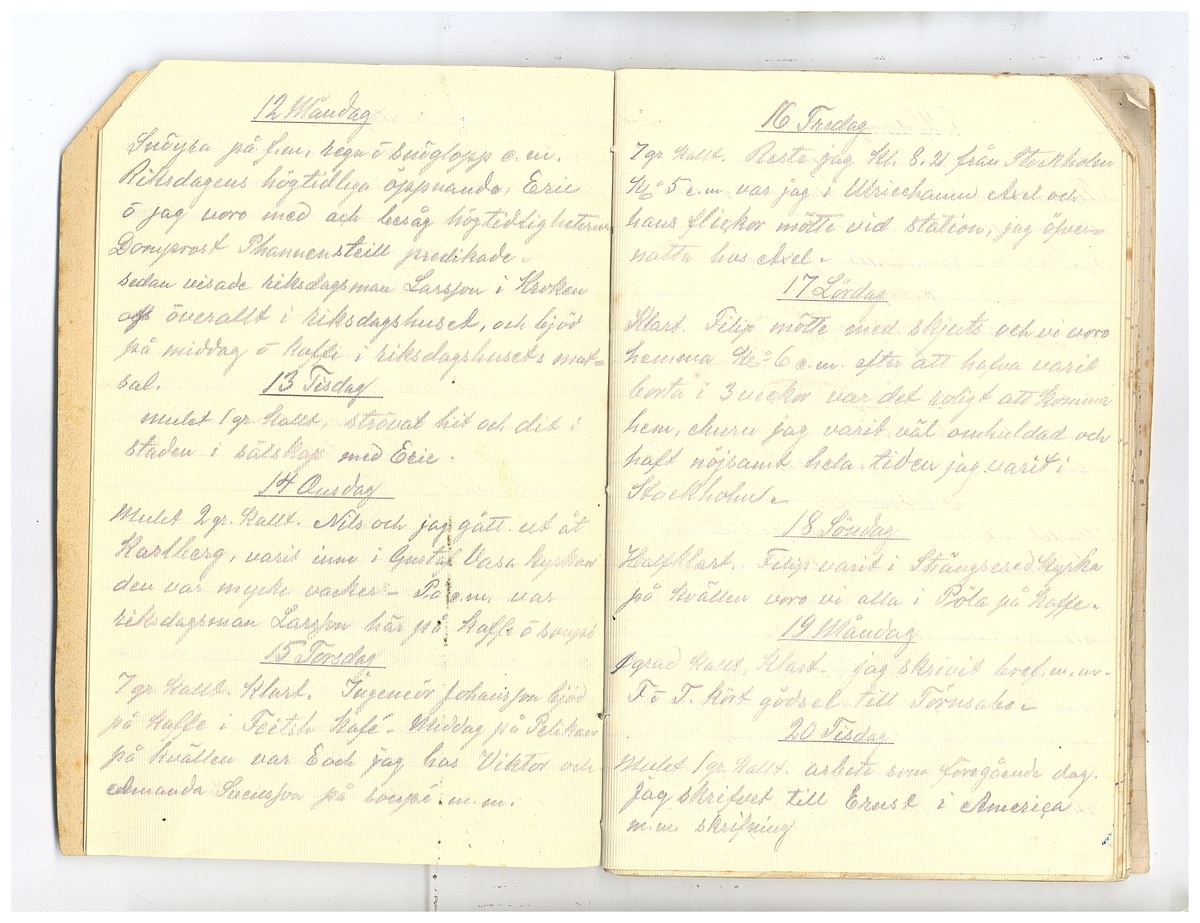 12 Måndag
Snöyra på f.m, regn ö snöglopp e.m.
Riksdagens högtidliga öppnande, Eric
ö jag voro med och besåg högtidligheterna
Domprost Phannensteill predikade.
sedan visade riksdagsman Larsson i Kroken
oss överallt i riksdagshuset, och bjöd
på middag ö kaffi i riksdagshusets mat-
sal.
13 Tisdag
mulet 1 gr. kallt, strövat hit och dit i
staden i sälskap med Eric.
14 Onsdag
Mulet 2 gr. kallt. Nils och jag gått ut åt
Karlberg, varit inne i Gustaf Vasa kyrkan
den var mycke vacker – På e.m. var
riksdagsman Larsson här på kaffe ö soupé
15 Torsdag
7 gr kallt. Klart. Ingeneör Johansson bjöd
på kaffe i Feiths Kafé – Middag på Pelikan
på kvällen var E och jag hos Viktor och
Amanda Svensson på soupé m.m.
16 Fredag
7 gr kallt. Reste jag kl. 8.21 från Stockholm
Kl 5 e.m. var jag i Ulricehamn Axel och
hans flickor mötte vid station, jag öfver-
natta hos Axel.
17 Lördag
Klart. Filip mötte med skjuts och vi voro
hemma Kl 6 e.m. efter att hafva varit
borta i 3 veckor var det roligt att komma
hem, ehuru jag varit väl omhuldad och
haft nöjsamt hela tiden jag varit i
Stockholm.
18 Söndag
Halfklart. Filip varit i Strängsered kyrka
på kvällen voro vi alla i Pöla på kaffe.
19 Måndag
grad kallt, klart. jag skrivet bref m.m.
F ö T. kört gödsel till Törnsabo.
20 Tisdag
Mulet 1 gr. kallt. arbete som föregående dag.
Jag skrifvet till Ernst i America
m.m. skrifning